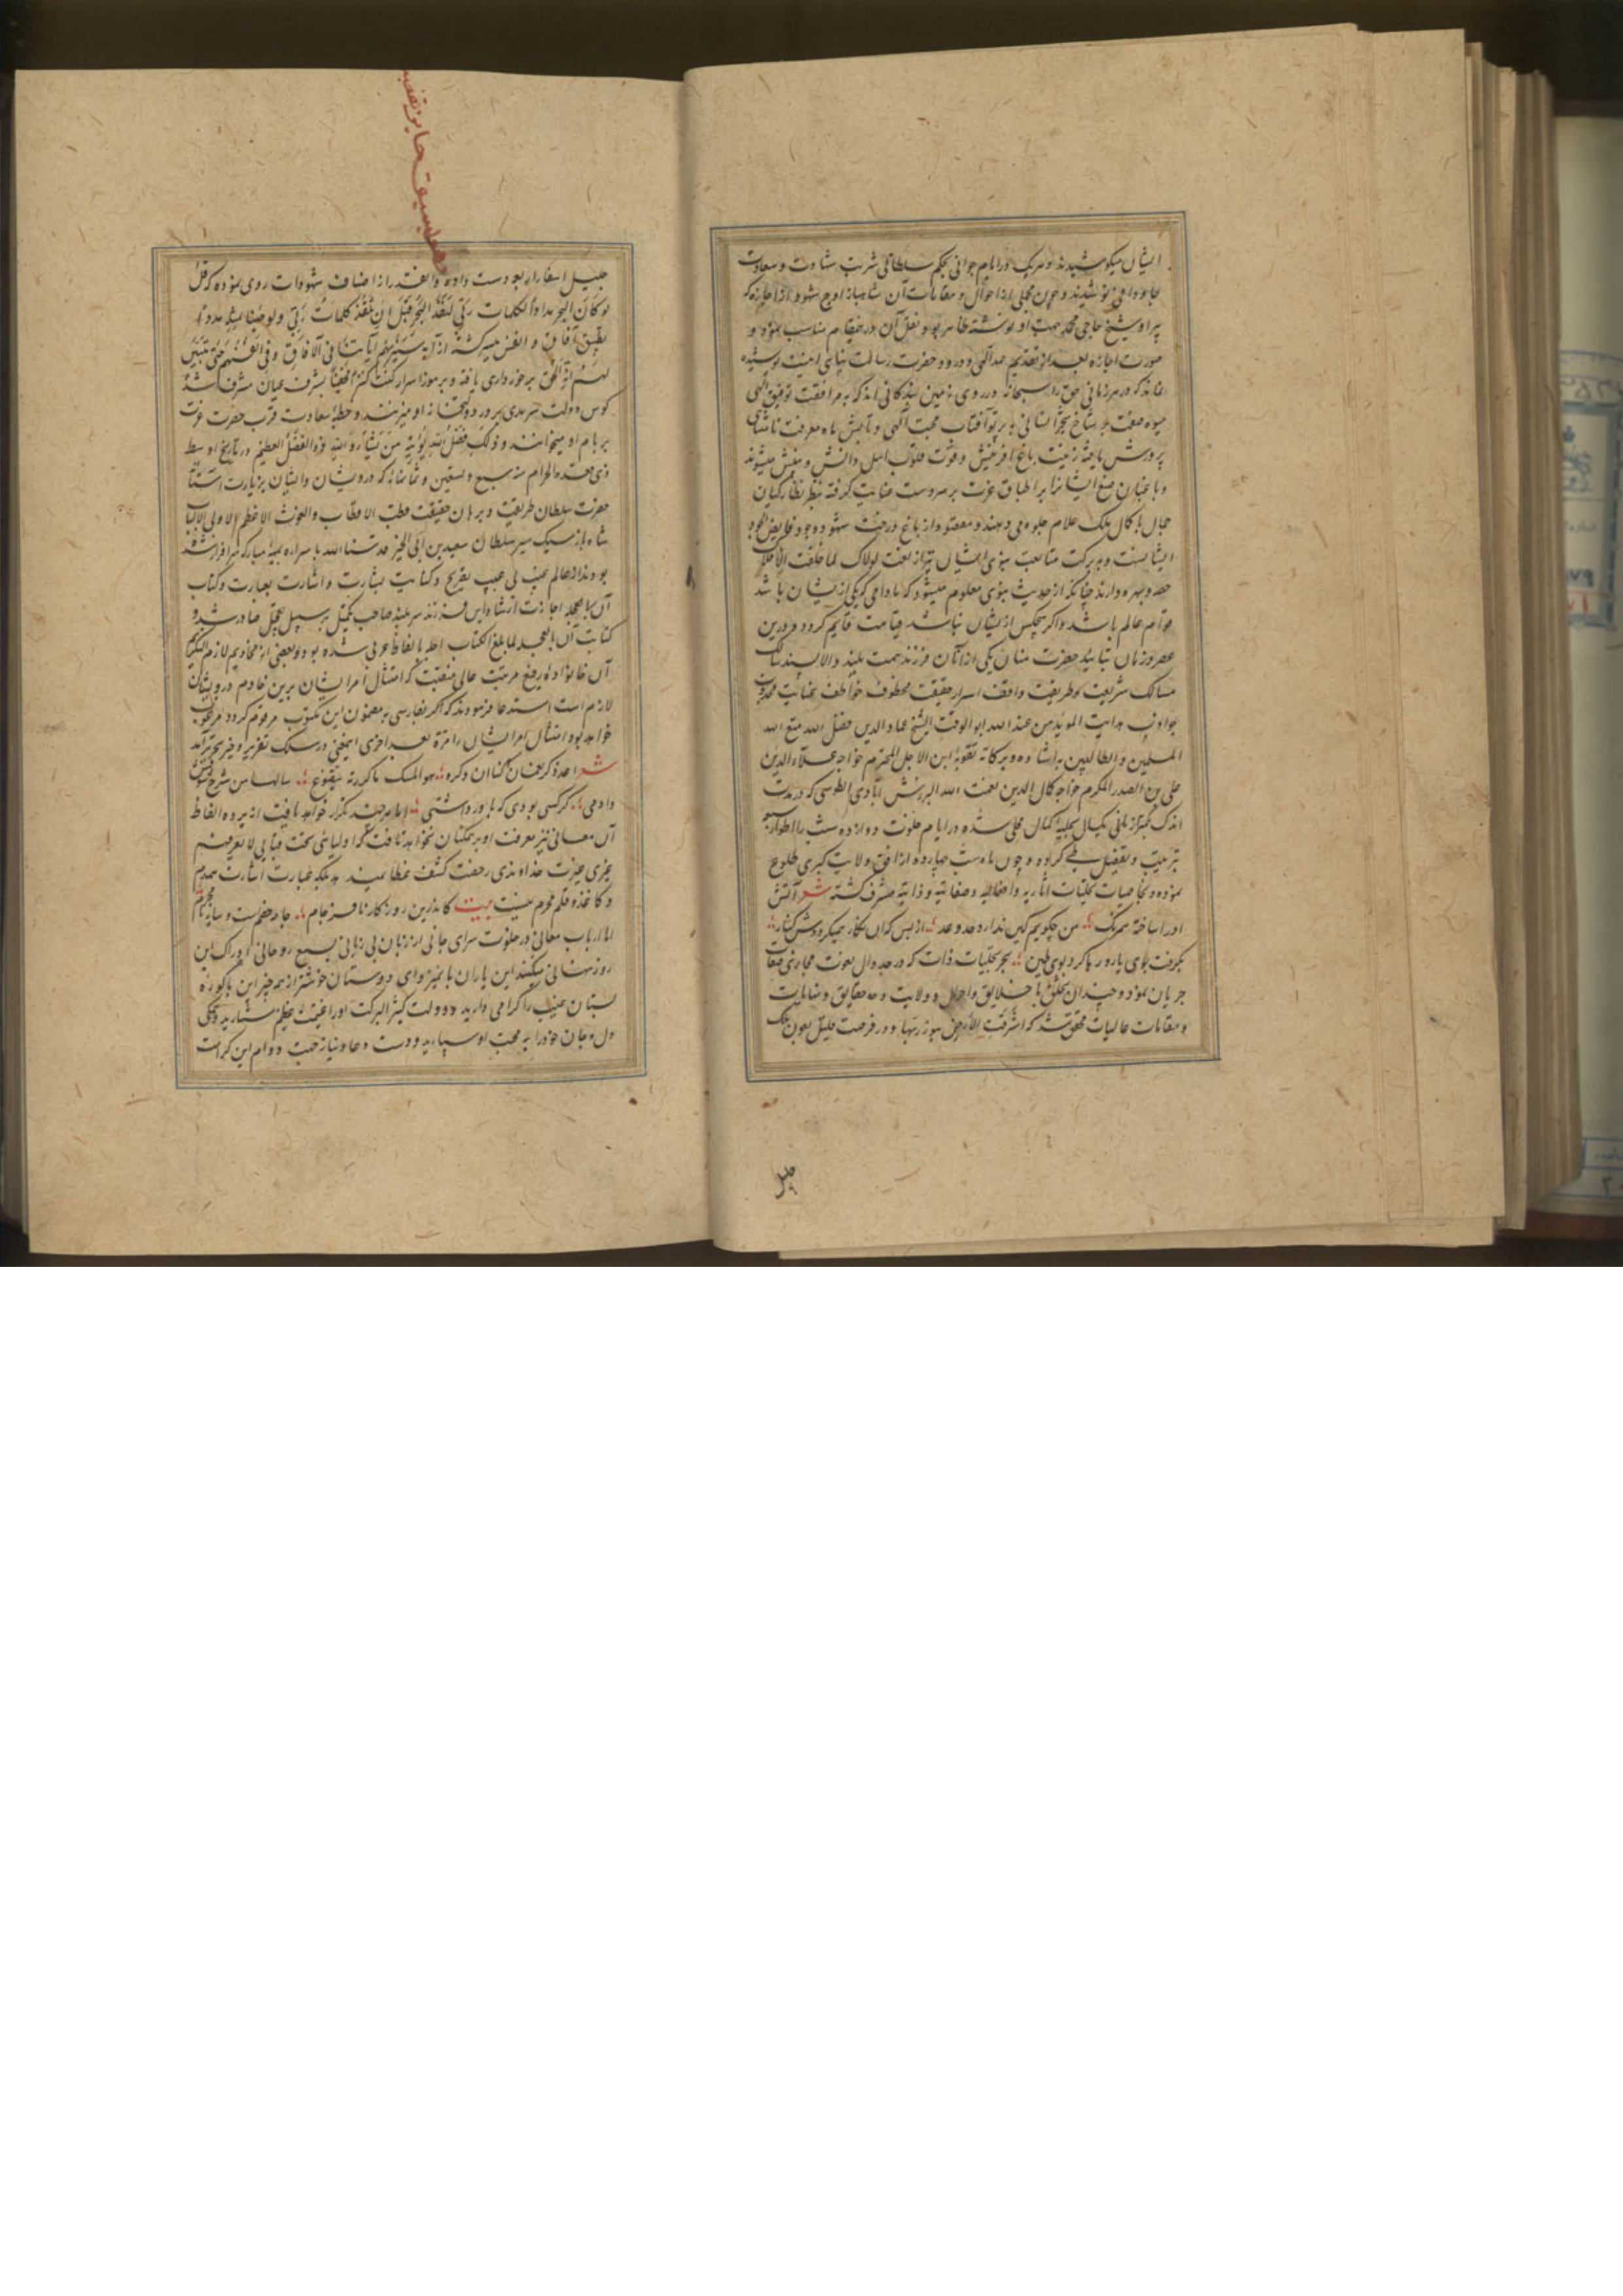 ایشان میکوشیدند و هریک در ایام جوانی بحکم سلطانی شربت شهادت و سعادت
جاودانی نوشیدند و چون مجملی از احوال و مقامات آن شاهباز اوج شهود از اجازه که
پیر او شیخ حاجی محمد جهت او نوشته ظاهر بود نقل آن درینمقام مناسب نمود و
صورت اجازه بعد از تقدیم حمد الهی و درود حضرت رسالت پناهی اینست پوشیده
نماند که در هر زمانی حق را سبحانه در روی زمین بندکانی اند که به مرافقت توفیق الهی
میوه صفت بر شاخ شجر انسانی به پرتو آفتاب محبت الهی و تابش ماه معرفت نامتناهی
پرورش یافته زینت باغ آفرینش و قوت قلوب اهل دانش و بینش میشوند
و باغبان صنع ایشانرا بر اطباق عزت بر سر دست عنایت کرفته بنظر نظارکیان
جمال با کمال ملک علام جلوه می دهند و مقصود از باغ درخت شهود وجود فایض الجود
ایشانست و به برکت متابعت نبوی ایشان نیز از نعت لولاک لما خلقت الافلاک
حصه و بهره دارند چنانکه از حدیث نبوی معلوم میشود که مادامی که یکی از یشان باشد
قوام عالم باشد و اکر هیچکس از یشان نباشد قیامت قایم کردد و درین
عصر و زمان بتایید حضرت منان یکی از آنان فرزند همت بلند والا پسند سالک
مسالک شریعت و طریقت واقف اسرار حقیقت محفوف عواطف عنایت مجذوب
جواذب هدایت الموید من عند الله ابو الوقت الشیخ عماد الدین فضل الله متع الله
المسلمین و الطالبین بارشاده و برکاته تقویة ابن الاجل المحترم خواجه علاء الدین
علی بن الصدر المکرم خواجه کمال الدین نعمت الله البرزش آبادی الطوسی که در مدت
اندک کمتر از مانی بکمال بحلیه کمال محلی شده در ایام خلوت دوازده سبت را اطوار سبعه
بترتیب و تفصیل طی کرده و چون ماه شب چهارده از افق ولایت کبری طلوع
نموده و بخاصیات تجلیات آثاریه و افعالیه و صفاتیه و ذاتیه مشرف کشته شعر آتش
او را ساخته همرنک من چکویم کین ندارد حد و عد از بس که آن نکار همیکرد کنار
بکرفت بوی یار و رها کرد بوی طین بحر تجلیات ذات که در جدوال نعوت مجاری صفات
جریان نمود و چندان تخلق با خلایق و احوال و ولایت و حقایق و نهایات
و مقامات عالیات محقق شد که اشرقت الارض بنور ربها و در فرصت قلیل بعون ملک
جلیل
جلیل اسفار اربعه دست داده و آنقدر از اصناف شهودات روی نموده که قل
لو کان البحر مدادا لکلمات ربی لنفد البحر قبل ان تنفد کلمات ربی و لو جئنا بمثله مددا
بتطبیق آفاق و انفس میسر کشته از آیه سنریهم آیاتنا فی الآفاق و فی انفسهم حتی یتبین
لهم انه الحق برخورداری یافته و بر موز اسرار کنت کنزا مخفیا بشرف عیان مشرف شد
کوس دولت سرمدی بر در دولتخانه او میزنند و خطبه سعادت قرب حضرت عزت
بر بام او میخوانند و ذلک فضل الله یؤتیه من یشاء و الله ذو الفضل العظیم در تاریخ اوسط
ذی قعده الحرام سنه سبع و تسعین و ثمانمائه که درویشان و ایشان بزیارت آستانه
حضرت سلطان طریقت و برهان حقیقت قطب الاقطاب و الغوث الاعظم لاولی الالباب
شاه باز سبک سیر سلطان سعید بن ابی الخیر قدسنا الله باسراره بمهنه مبارکه سرافراز شده
بودند از عالم غیب لی عیب بصریح و کنایت بشارت و اشارت بعبارت و کتاب
آن بالمجله اجازت ارشاد این فرزند سر بلند صاحب تکمیل بر سبیل تعجیل صادر شد و
کتابت آن بالمجله لما بلغ الکتاب اجله بالفاظ عربی شده بود و بعضی از مخادیم لازم التکریم
آن خانواده رفیع مرتبت عالی منقبت که امتثال امر ایشان برین خادم درویشان
لازم است استدعا فرمودند که اکر بفارسی به مضمون این مکتوب مرقوم کردد مرغوب
خواهد بود امتثال امر ایشان را مرة بعد اخری اینمعنی در سلک تقریر و حیز تحریر آمد
شعر اعد ذکر نعمان لنا ان ذکره هو المسک ما کررته یتضوع سالها من شرح خویش
دادمی کر کسی بودی که باور داشتی اما هر چند مکرر خواهد یافت از پرده الفاظ
آن معانی نیز معرفت او بر همکنان نخواهد تافت که اولیائی تحت قبایی لا یعرفهم
غیری غیرت خداوندی رخصت کشف غطا نمیدهد بلکه عبارت اشارت همدم
و کاغذ و قلم محرم نیست بیت کاندرین روزکار نافرجام جامه خصمست و سایه نامحرم
اما ارباب معانی در خلوت سرای جانی از زبان بی زبانی بسمع روحانی ادراک این
روز نهانی میکنند این یاران با تمیز و ای دوستان خوشتر از همه چیز این باکوره
بستان غیب را کرامی دارید و دولت کثیر البرکت او را غنیمت عظیم شمارید و همکی
دل و جان خود را به محبت او سپارید و دست دعا و نیاز جهت دوام این کرامت